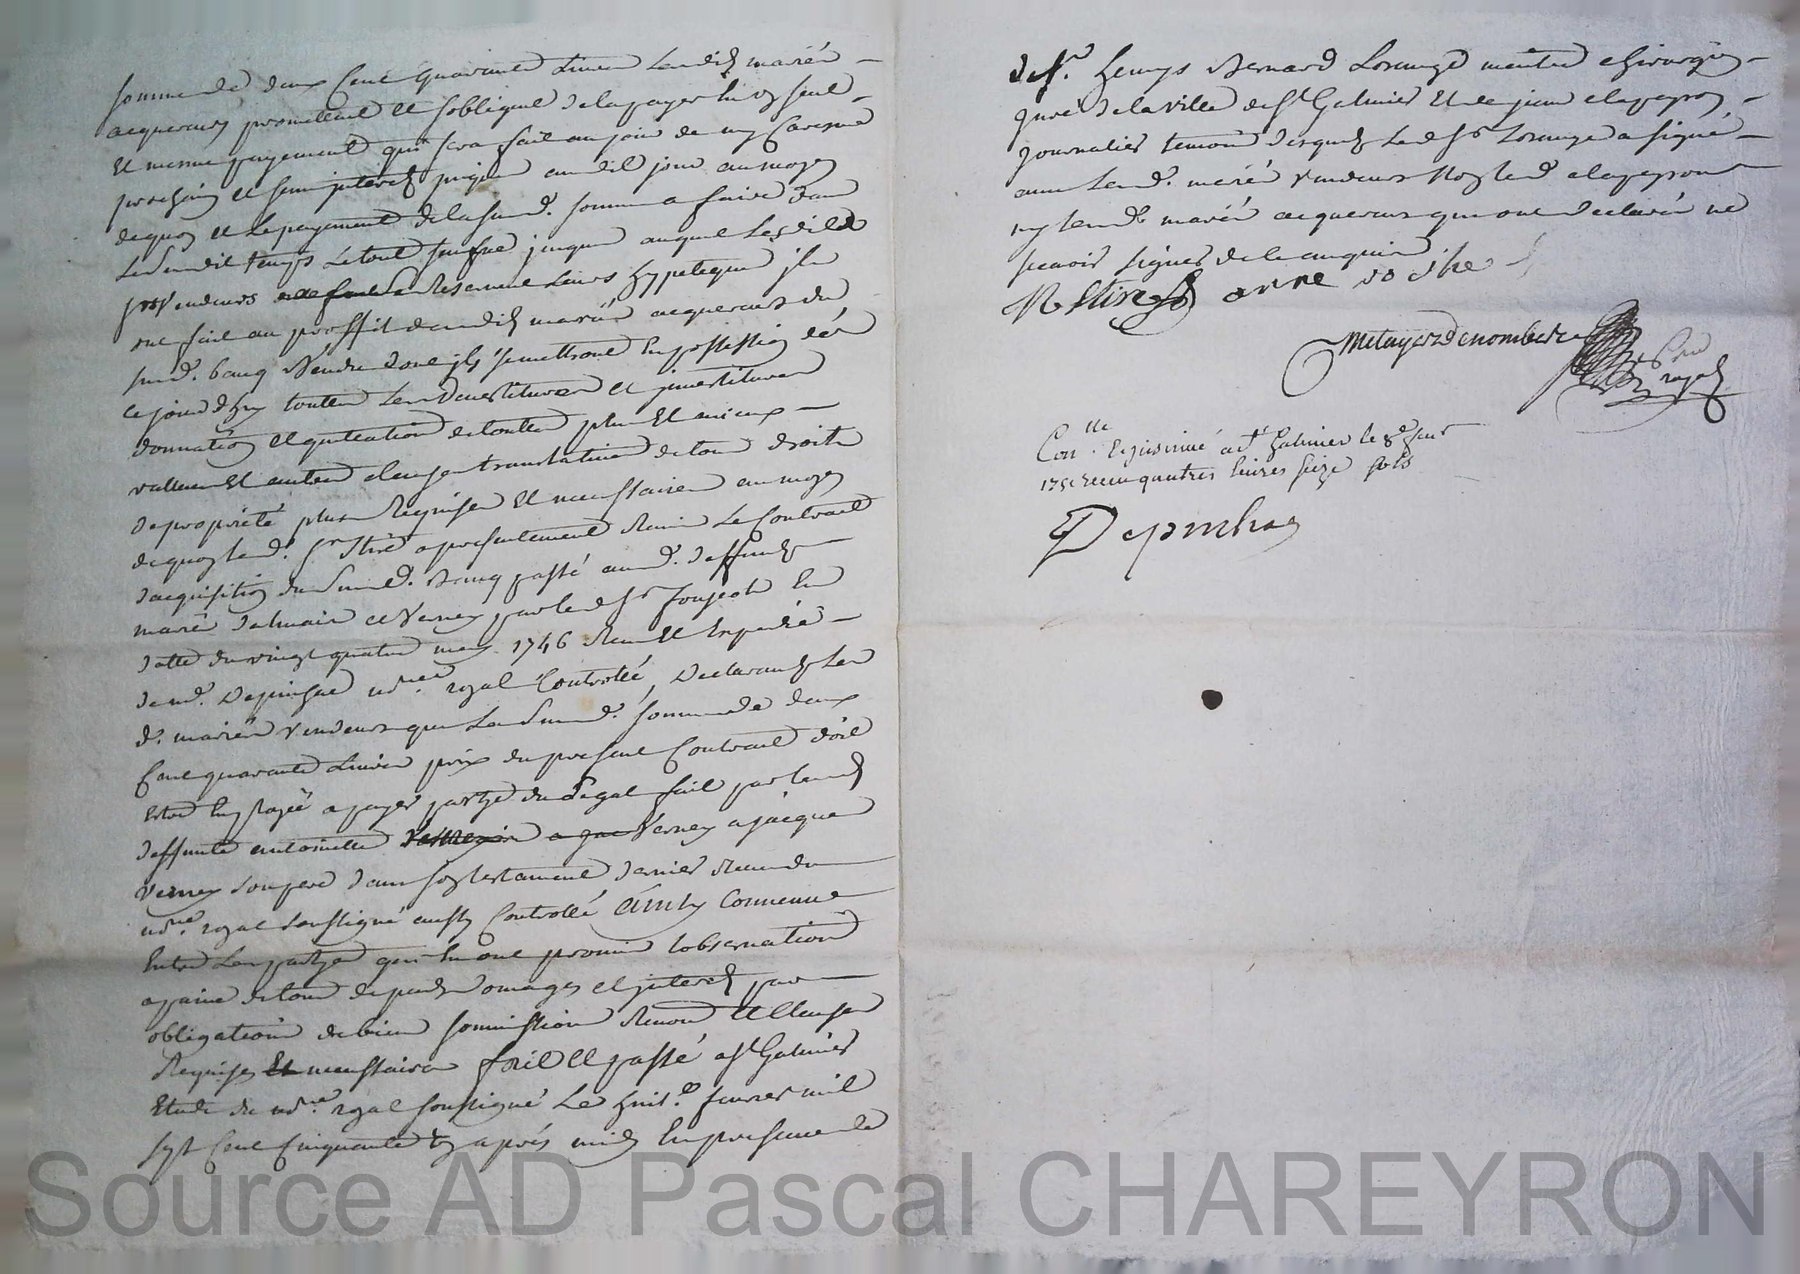 somme de deux cent quarante Livres Lesdits mariés
acquereurs promettent et sobligent de la payer en un seul
Et mesme payement qui sera fait au jour de my Caresme
prochain et sans interest jusques audit jour au moyen
dequoy et Le payement de la susd. somme a faire dans
Le susdit temps Letout souffre jusques auquel Lesdits
vendeurs se Reservent Leurs hypoteque ils
ont fait au proffit desdits mariés acquereurs du
susd. bancq vendu dont ils semettront En possession dès
ce jourdhuy toutes Les devestitures et jnvestitures
donnation et quitation de toutes plus Et mieux
vallues Et autres clauses translatives de tous droits
de propriété plus Requises Et necessaires au moyen
dequoy led. Sr a presentement Remis Le Contract
dacquisition du susd. Bancq passé aud. deffunts
mariés et Verney par led Sr En
datte du vingt quatre may 1746 Receu Et Expedié
de md. Depinhac nore royal Controllé, Declarants Les
d. mariés vendeurs que La Susd. somme de deux
Cent quarante Livres prix du present Contract doit
Estre Employée a payer partye du Legat fait par lad
deffunte antoinette Verney a jacques
verney son pere dans son testament dernier Receu du
nore royal soussigné aussy Controllé Ainsy Convenu
Entre Les partyes qui En ont promis Lobservation
a peine de tous depends domages et jnterests par
obligation de biens soumission Renon. Et Clauses
Requises Et necessaires fait et passé a St Galmier
Etude du nore royal soussigné Le huit.e feuvrier mil
sept Cent Cinquante apres midy En presence de
de Sr. henrys Bernard Lorange maitre chirurgien
juré de la ville de St Galmier Et de jean clapeyron
journalier temoins desquels Led Sr Lorange a signé
avec Lesd. mariés vendeurs Non led clapeyron
ny lesd. mariés acquereurs qui ont declarés ne
scavoir signer de ce enquis
anne
Metayer Denombre
royal
Conlle Et jnsinué a St Galmier le 8e feur
175 Receu quatres livres seize sols
Depinhac
Source AD Pascal CHAREYRON